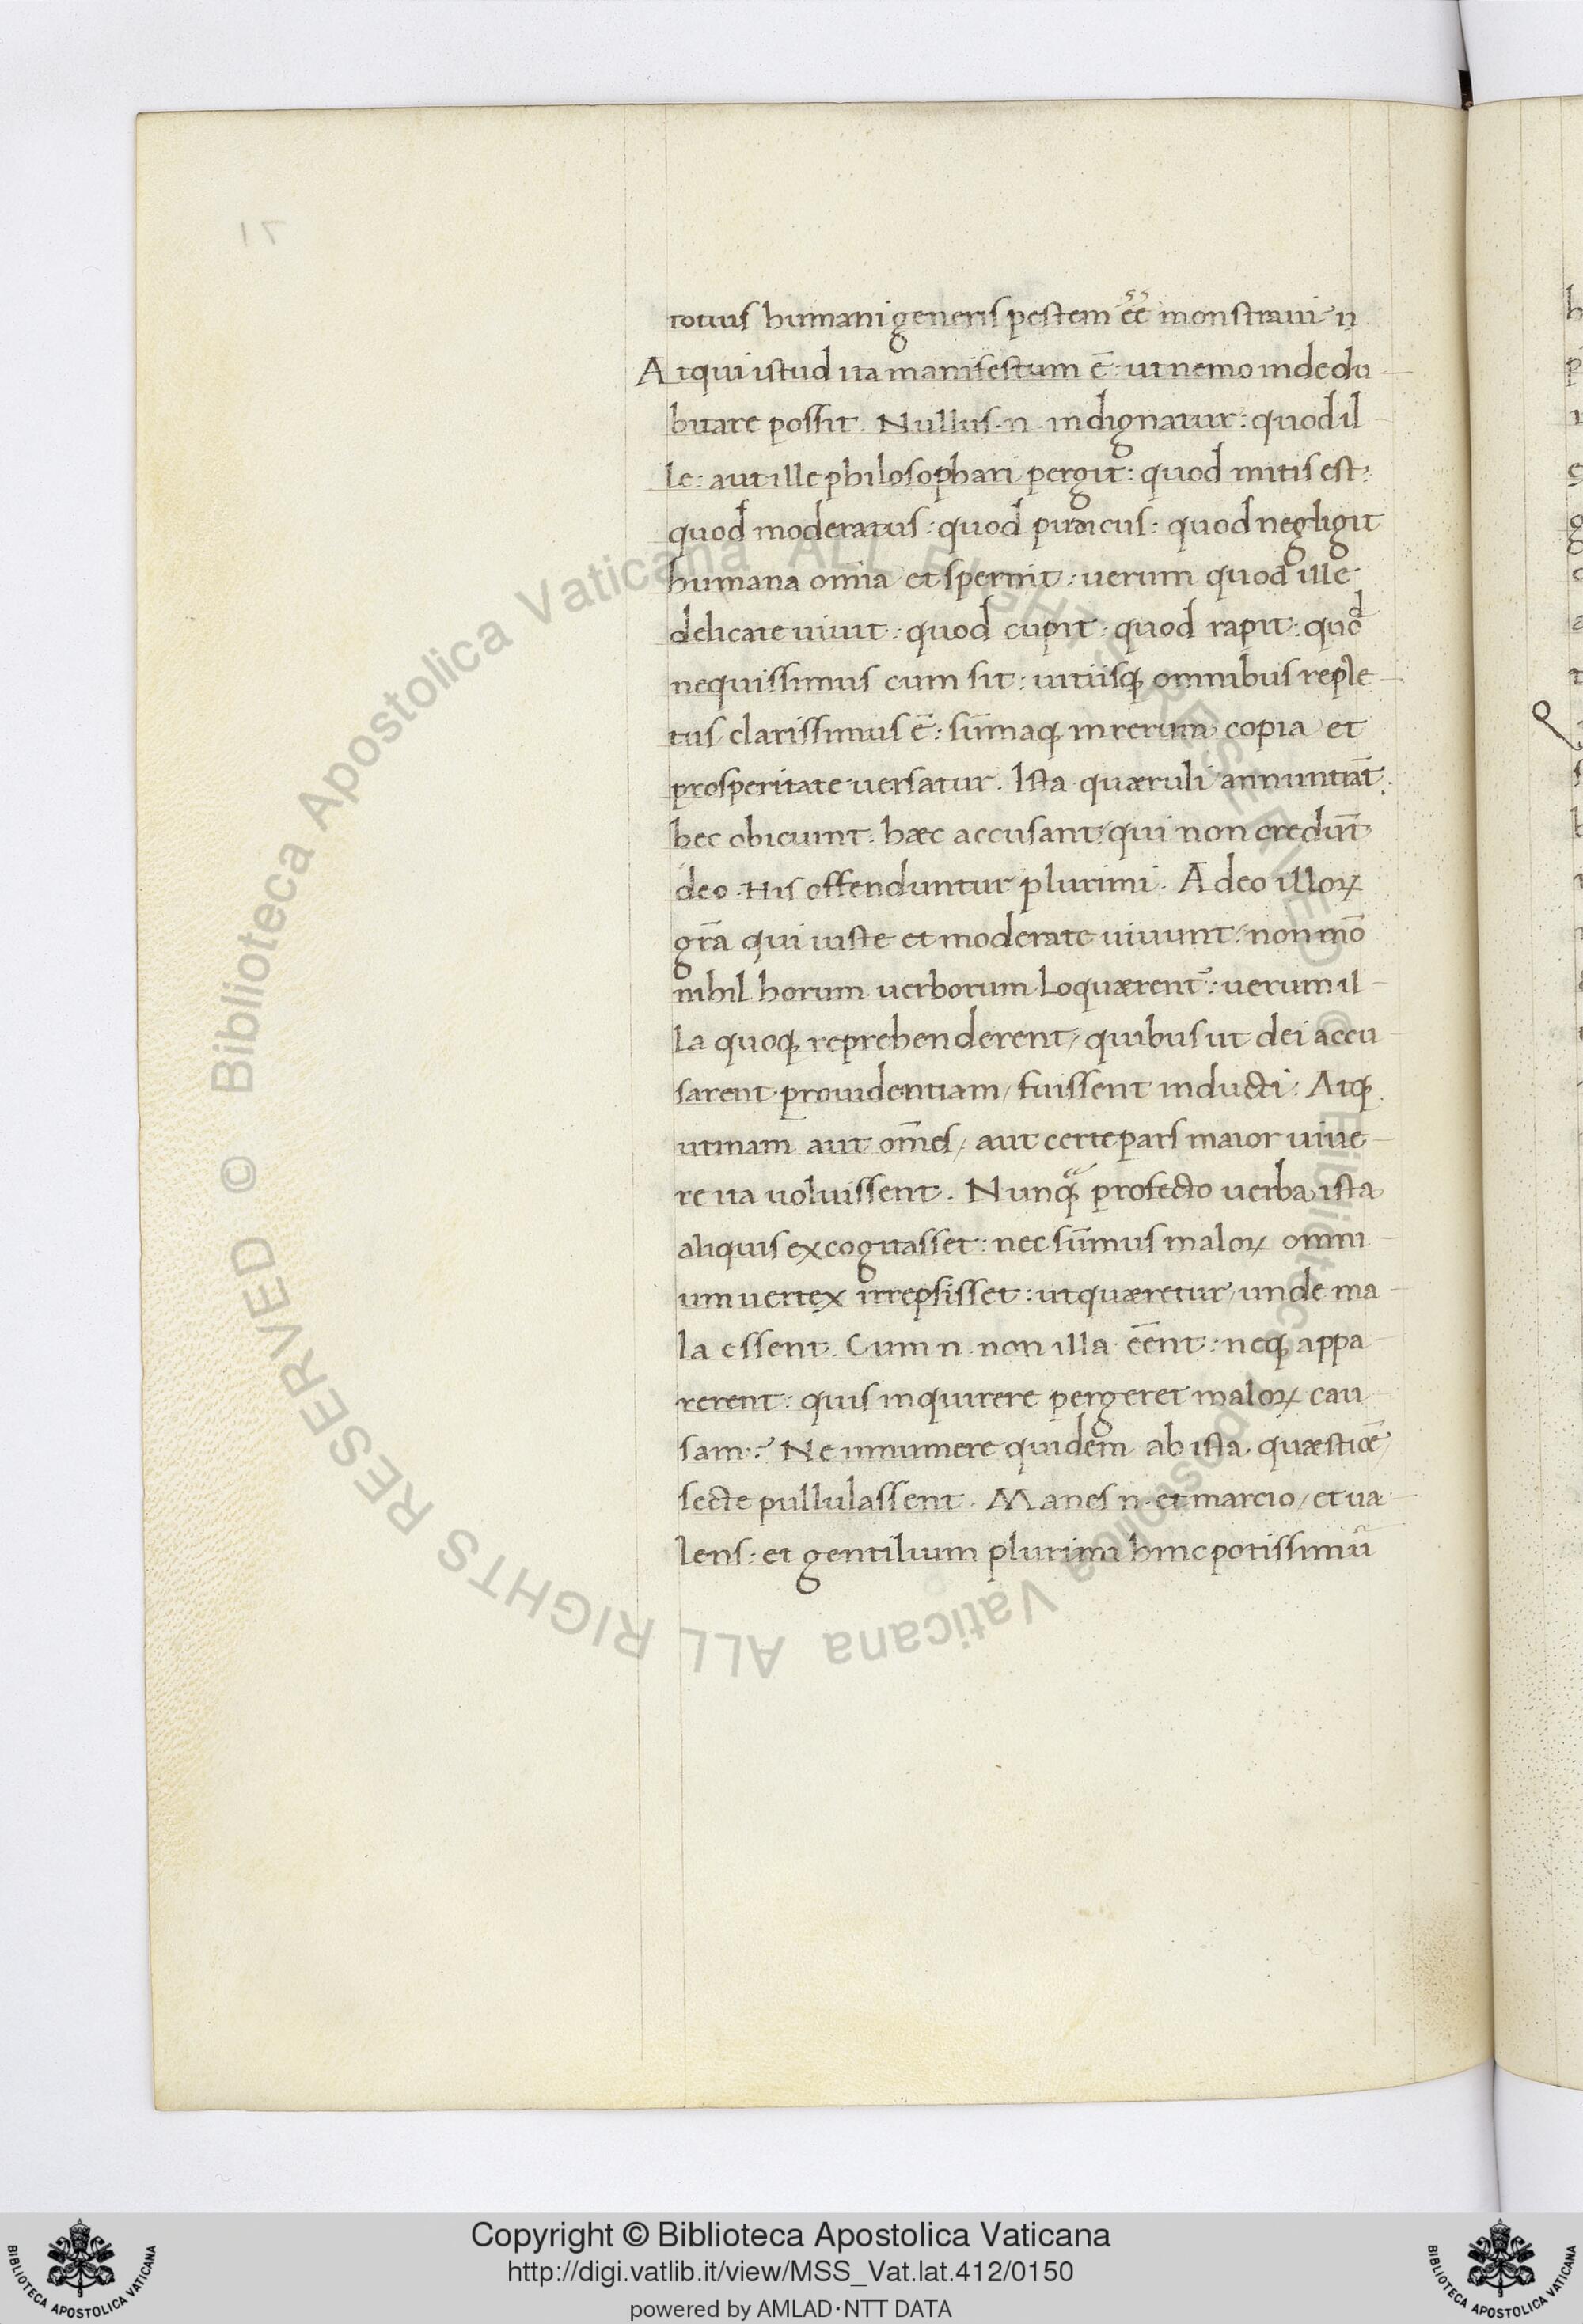 totius humani generis pestem eē monstraui n
Atqui istud ita manifestum ē: ut nemo inde du
bitare possit. Nullus .n. indignatur: quod il
le: aut ille philosophari pergit: quod mitis est:
quod moderatus: quod pudicus: quod negligit
humana omīa et spernit: uerum quod ille
delicate uiuit: quod cupit: quod rapit: quod
nequissimus cum sit: uitiisq; omnibus reple
tus/ clarissimus ē: sūmaq; in rerum copia et
prosperitate uersatur. Ista quæruli annuntiāt:
hec obiciunt: hæc accusant/ qui non credūt
deo. His offenduntur plurimi. Adeo illoꝝ
grā qui iuste et moderate uiuunt/ non mō
nihil horum uerborum loquærent᷒: uerum il
la quoq; reprehenderent/ quibus ut dei accu
sarent prouidentiam/ fuissent inducti: Atq;
utinam aut om̄es/ aut certe pars maior uiue
re ita uoluissent. Nunqᵃ profecto uerba ista
aliquis excogitasset: nec sūmus maloꝝ omni
um uertex irrepsisset: ut quæretur/ unde ma
la essent. Cum .n. non illa eēnt: neq; appa
rerent: quis inquirere pergeret maloꝝ cau
sam:? Ne innumere quidem ab ista quæstiōe/
secte pullulassent. Manes .n. et marcio/ et ua
lens: et gentilium plurimi hinc potissimū
© Biblioteca Apostolica Vaticana ALL RIGHTS RESERVED
© Biblioteca Apostolica Vaticana ALL RIGHTS RESERVED
Copyright © Biblioteca Apostolica Vaticana
http://digi.vatlib.it/view/MSS_Vat.lat.412/0150
powered by AMLAD·NTT DATA
BIBLIOTECA APOSTOLICA VATICANA
BIBLIOTECA APOSTOLICA VATICANA